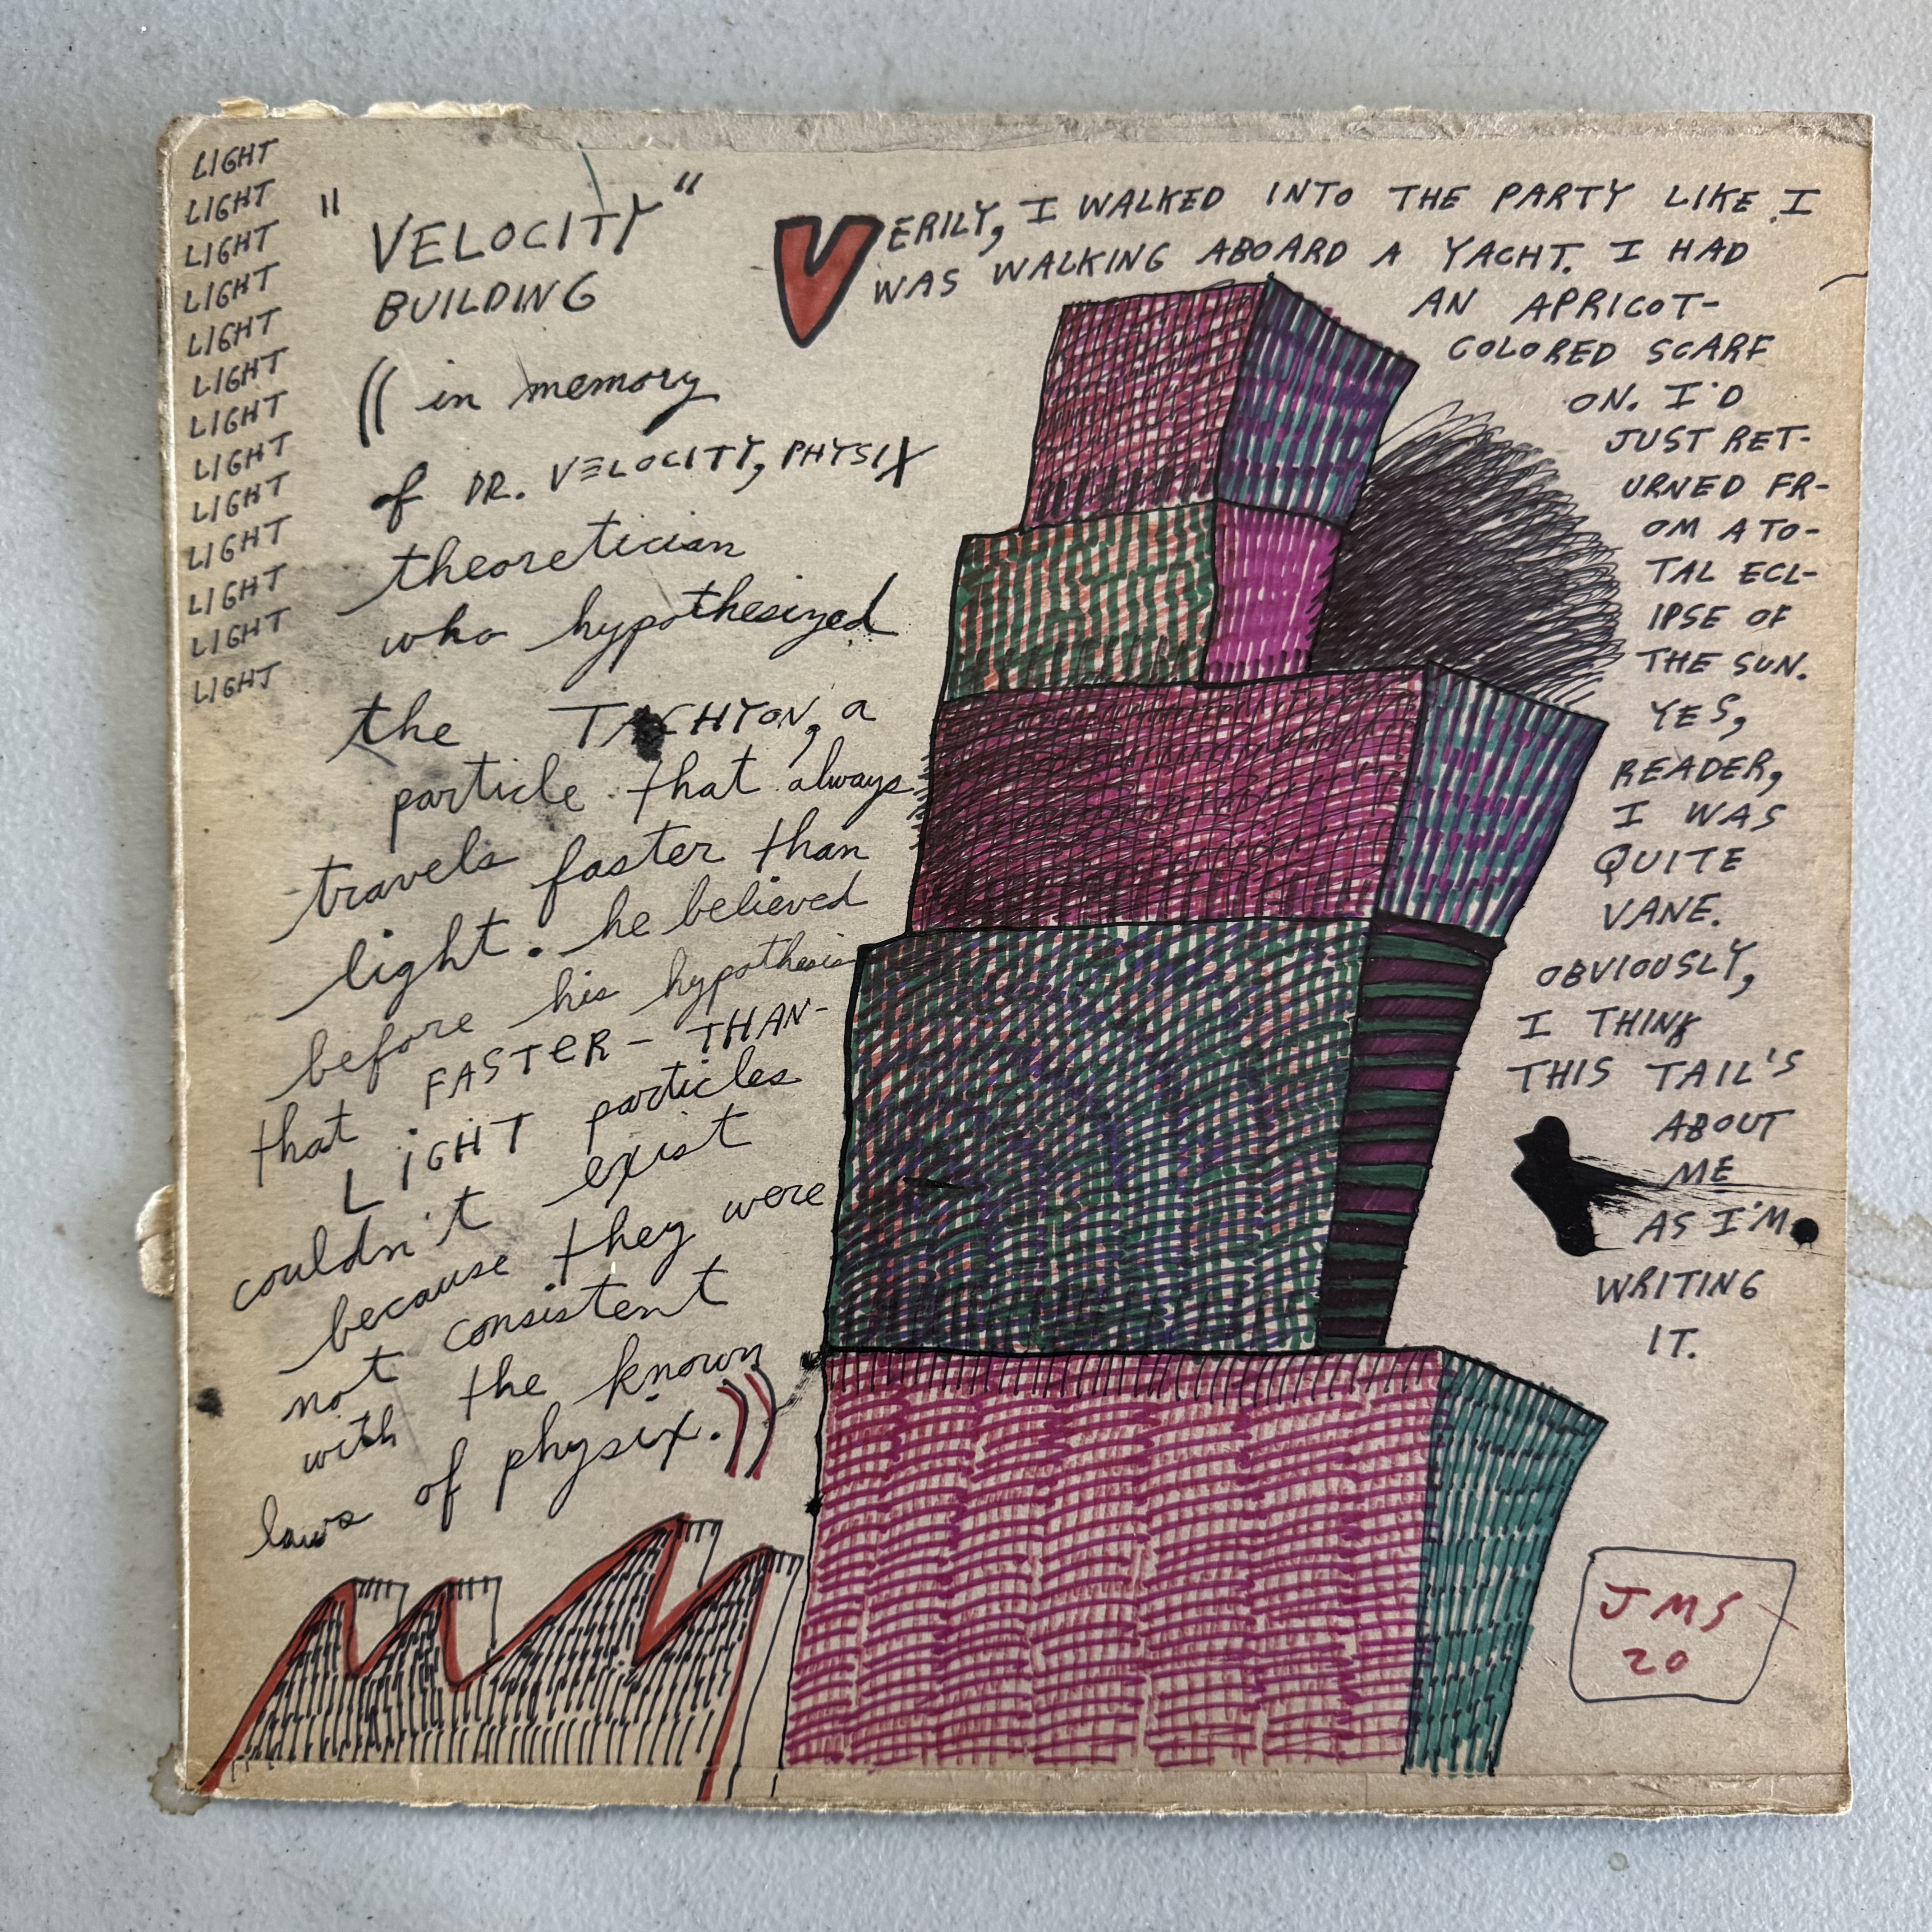 LIGHT
LIGHT
LIGHT
LIGHT
LIGHT
LIGHT
LIGHT
LIGHT
LIGHT
LIGHT
LIGHT
LIGHT
LIGHT
"VELOCITY"
BUILDING
((in memory
of DR. VELOCITY, PHYSIX
theoretician
who hypothesized
the TACHYON, a
particle that always
travels faster than
light. he believed
before his hypothesis
that FASTER-THAN-
LIGHT particles
couldn't exist
because they were
not consistent
with the known
laws of physix.))
VERILY, I WALKED INTO THE PARTY LIKE I
WAS WALKING ABOARD A YACHT. I HAD
AN APRICOT-
COLORED SCARF
ON. I'D
JUST RET-
URNED FR-
OM A TO-
TAL ECL-
IPSE OF
THE SUN.
YES,
READER,
I WAS
QUITE
VANE.
OBVIOUSLY,
I THINK
THIS TAIL'S
ABOUT
ME
AS I'M
WRITING
IT.
JMS
20